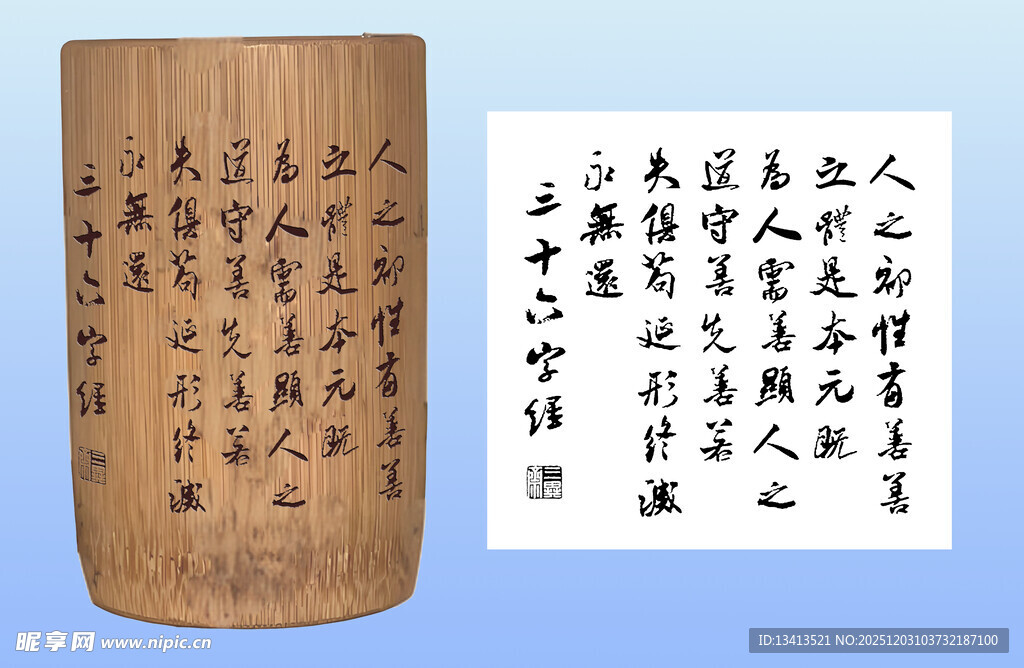 人之初性有善善
立體是本元既
為人需善顯人之
道守善先善若
失俱苟延形終滅
永無還
三十六字經
人之初性有善善
立體是本元既
為人需善顯人之
道守善先善若
失俱苟延形終滅
永無還
三十六字經
昵享网 www.nipic.cn
ID:13413521 NO:20251203103732187100